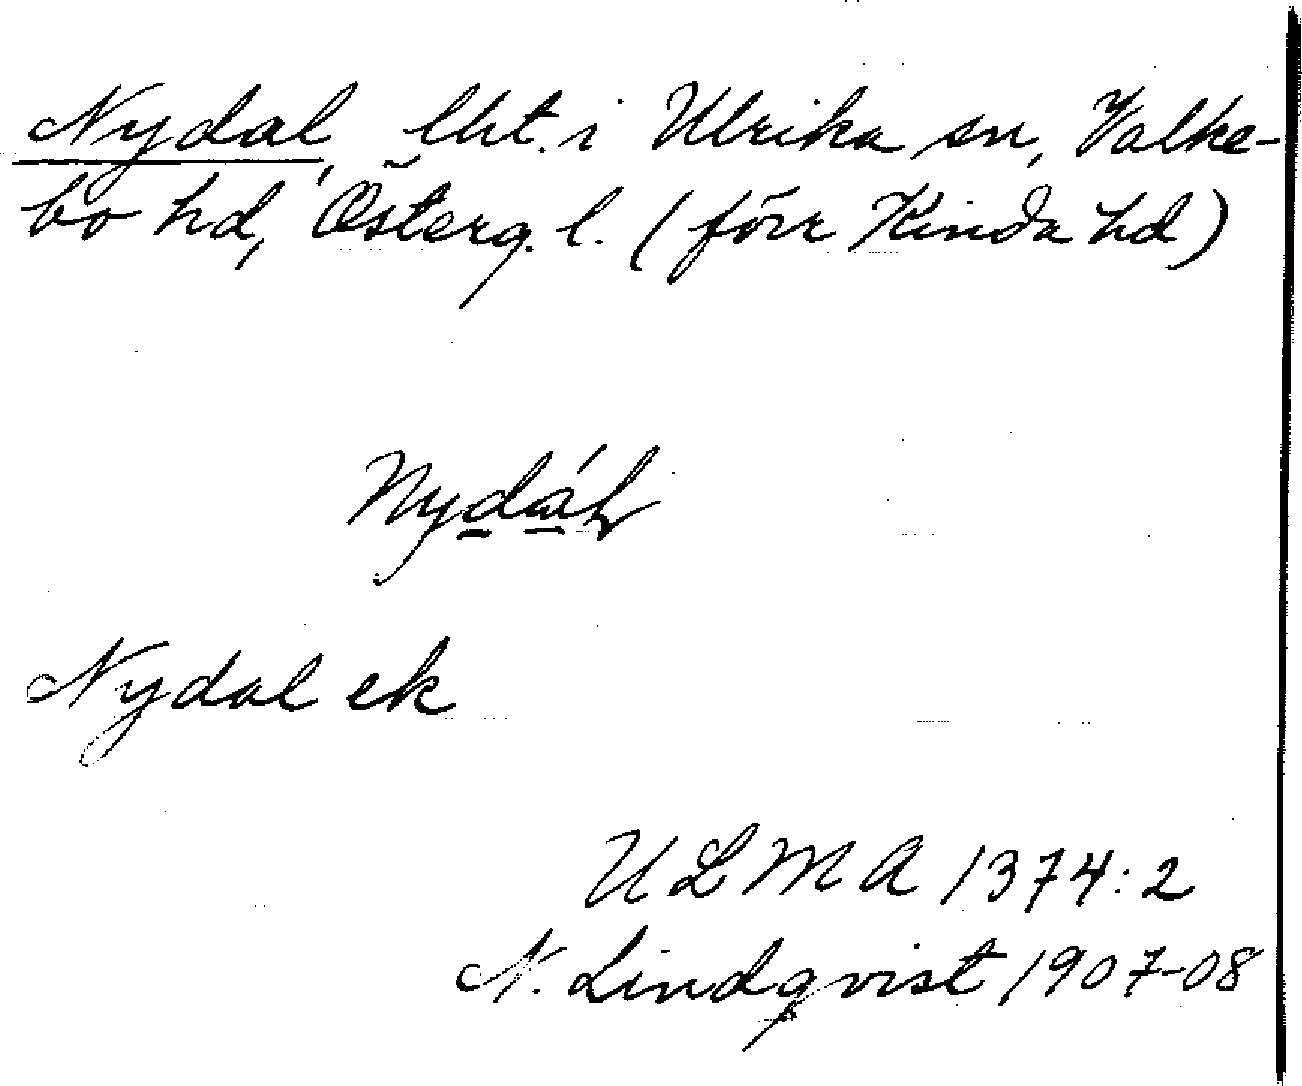 Nydal, lht. i Ulrika sn, Valke-
bo hd, Österg. l. (förr Kinda hd)
Nydáɫ
Nydal ek
ULMA 1374:2
N. Lindqvist 1907-08